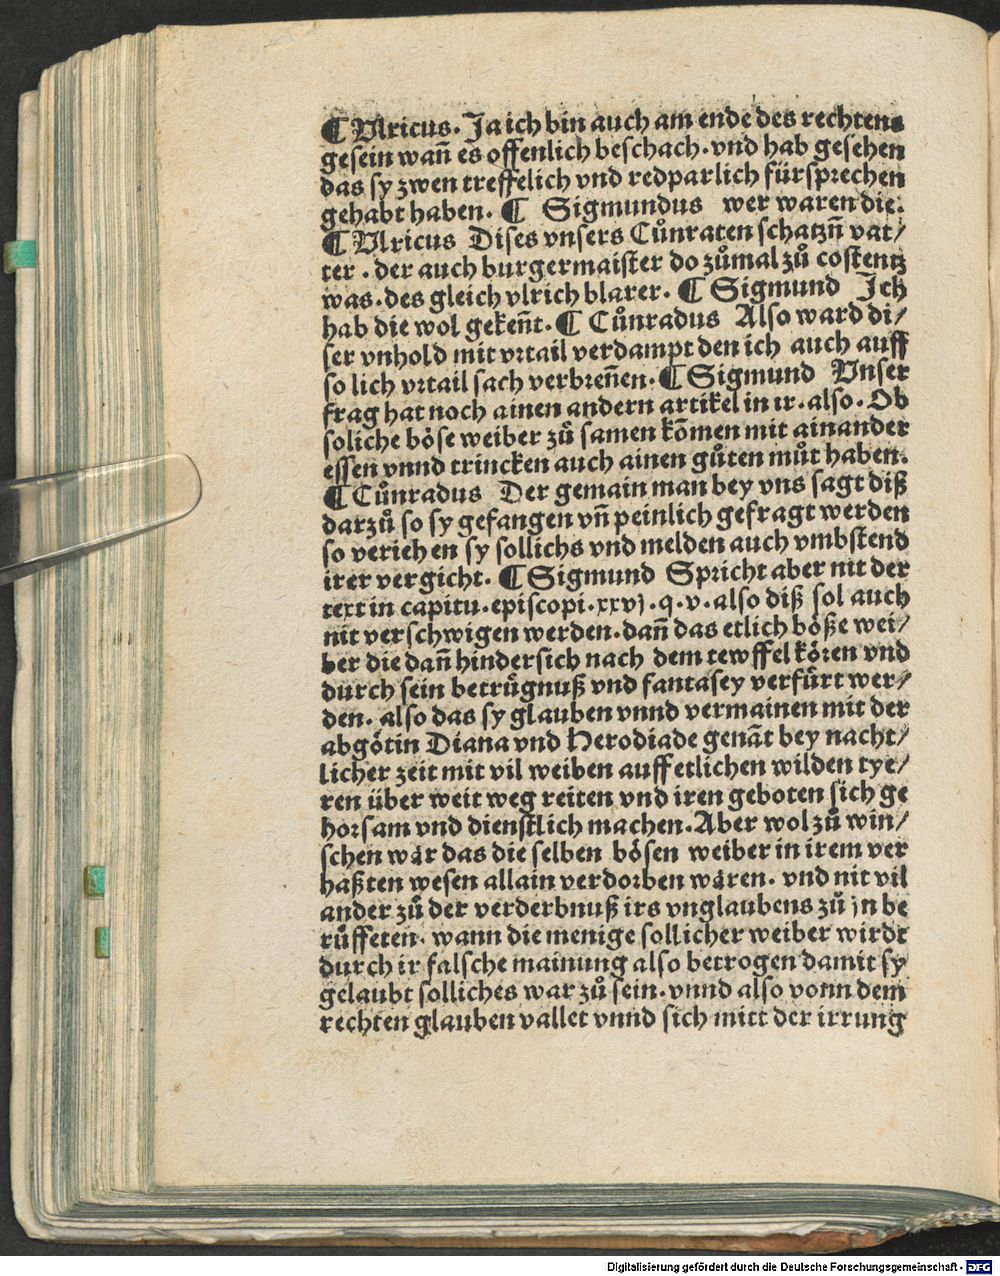 ¶ Ulricus. Ja ich bin auch am ende des rechtens
gesein wañ es offenlich beschach. vnd hab gesehen
das sy zwen treffelich vnd redparlich fürsprechen
gehabt haben. ¶ Sigmundus wer waren die.
¶ Ulricus Dises vnsers Cůnraten schatzñ vat/
ter. der auch burgermaister do zůmal zů costentz
was. des gleich vlrich blarer. ¶ Sigmund Ich
hab die wol gekeñt. ¶ Cůnradus Also ward di/
ser vnhold mit vrtail verdampt den ich auch auff
so lich vrtail sach verbreñen. ¶ Sigmund Unser
frag hat noch ainen andern artikel in ir. also. Ob
soliche böse weiber zů samen kōmen mit ainander
essen vnnd trincken auch ainen gůten můt haben.
¶ Cůnradus Der gemain man bey vns sagt diß
darzů so sy gefangen vñ peinlich gefragt werden
so veriehen sy sollichs vnd melden auch vmbstend
irer vergicht. ¶ Sigmund Spricht aber nit der
text in capitu. episcopi. xxvj. q. v. also diß sol auch
nit verschwigen werden. dañ das etlich böße wei/
ber die dañ hindersich nach dem tewffel kören vnd
durch sein betrůgnuß vnd fantasey verfůrt wer/
den. also das sy glauben vnnd vermainen mit der
abgötin Diana vnd Herodiade genāt bey nacht/
licher zeit mit vil weiben auff etlichen wilden tye/
ren über weit weg reiten vnd iren geboten sich ge
horsam vnd dienstlich machen. Aber wol zů win/
schen wår das die selben bösen weiber in irem ver
haßten wesen allain verdorben wåren. vnd nit vil
ander zů der verderbnuß irs vnglaubens zů jn be
růffeten. wann die menige sollicher weiber wirdt
durch ir falsche mainung also betrogen damit sy
gelaubt solliches war zů sein. vnnd also vonn dem
rechten glauben vallet vnnd sich mitt der irrung
Digitalisierung gefördert durch die Deutsche Forschungsgemeinschaft - DFG